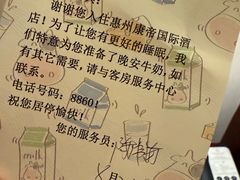 谢谢您入住惠州康帝国际酒
店！为了让您有更好的睡眠，我
们特意为您准备了晚安牛奶，如
有其它需要，请与客房服务中心
联系。
电话号码：8860！
祝您居停愉快！
您的服务员：
月
milk